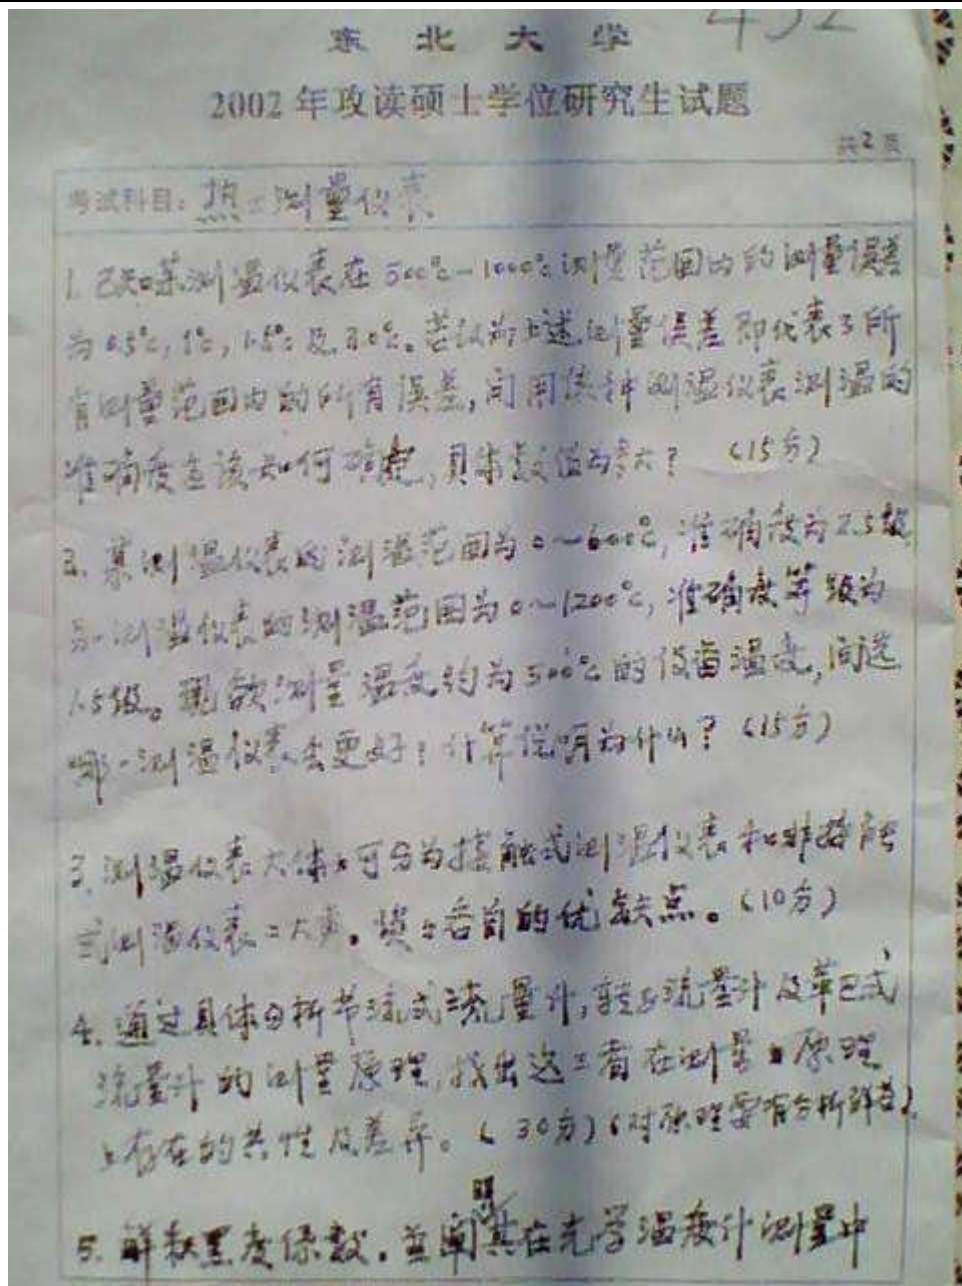 东北大学
2002年攻读硕士学位研究生试题
共2页
考试科目: 热工测量仪表
1. 已知某测温仪表在500℃-1000℃测量范围内的测量误差
为0.5℃, 1℃, 1.5℃及2.0℃。若认为上述测量误差即代表了所
有测量范围内的所有误差, 问用该种测温仪表测温的
准确度应该如何确定, 具体数值为多大? (15分)
2. 某测温仪表的测温范围为0~600℃, 准确度为2.5级
另一测温仪表的测温范围为0~1200℃, 准确度等级为
1.5级。现欲测量温度约为500℃的设备温度, 问选
哪一测温仪表会更好? 计算说明为什么? (15分)
3. 测温仪表大体可分为接触式测温仪表和非接触
式测温仪表二大类。各自的优缺点。(10分)
4. 通过具体分析节流式流量计, 转子流量计及毕托式
流量计的测量原理, 找出这三者在测量原理
上存在的共性及差异。(30分) (对原理要有分析
5. 解释黑度系数。并阐明其在光学温度计测量中